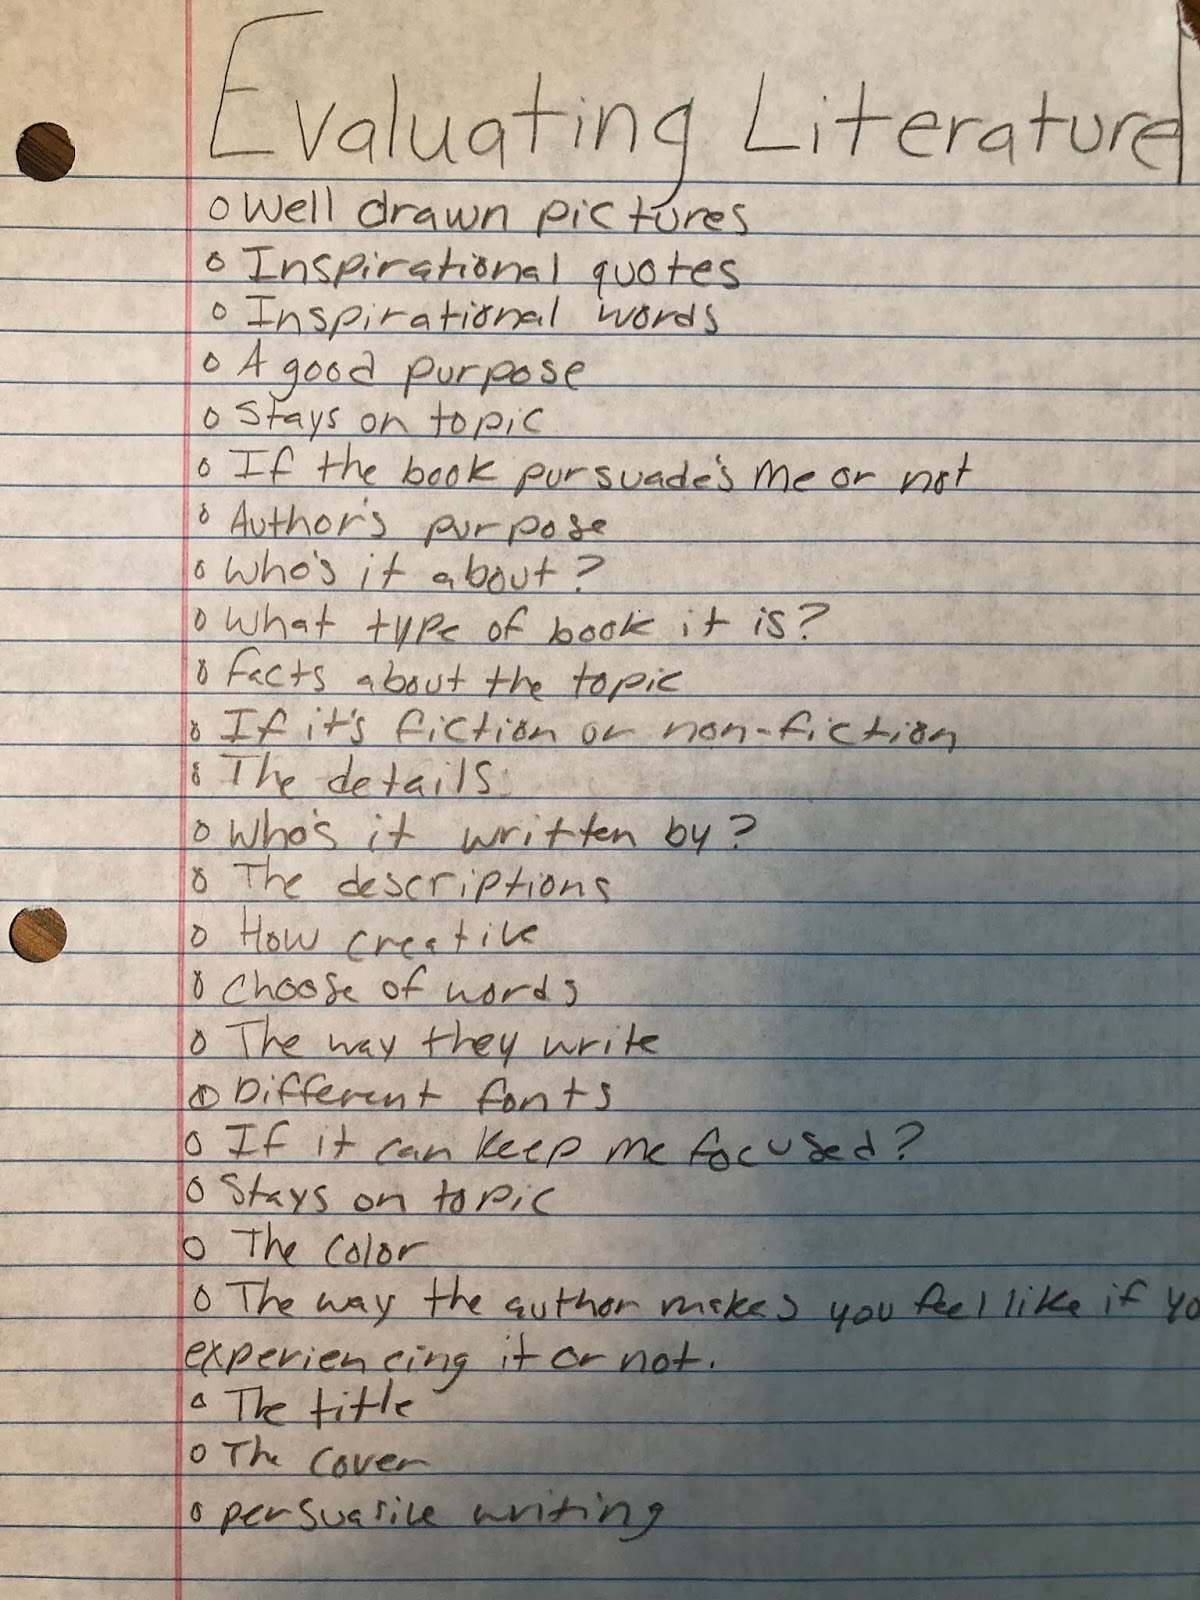 Evaluating Literature
o Well drawn pictures
o Inspirational quotes
o Inspirational words
o A good purpose
o Stays on topic
o If the book pursuade's me or not
o Author's purpose
o Who's it about?
o What type of book it is?
o facts about the topic
o If it's fiction or non-fiction
o The details
o Who's it written by?
o The descriptions
o How creative
o Choose of words
o The way they write
o Different fonts
o If it can keep me focused?
o Stays on topic
o The color
o The way the author makes you feel like if yo
experiencing it or not.
o The title
o The cover
o persuasive writing